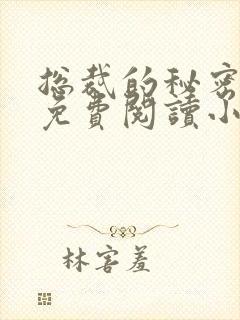 总裁的秘密
免費閱讀小
林害羞